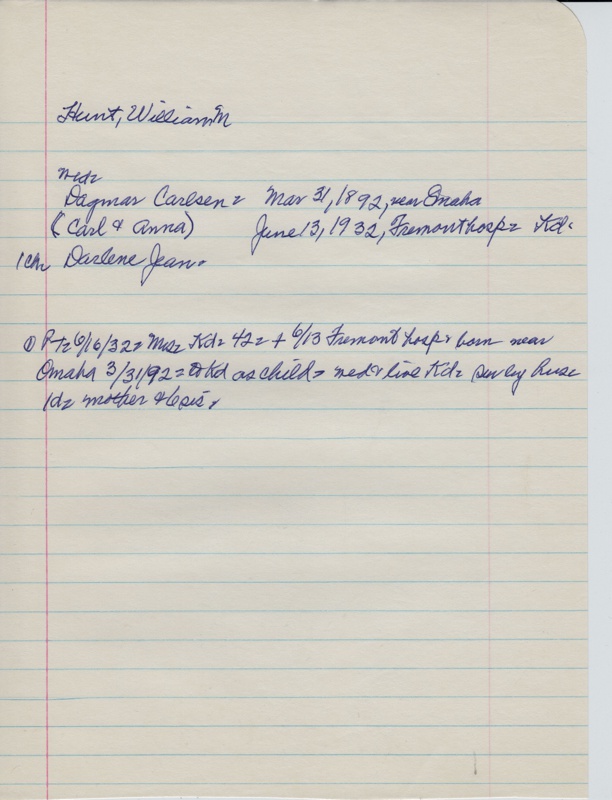 Hunt, William M
md=
Dagmar Carlsen= Mar 31, 1892, near Omaha
(Carl & Anna) June 13, 1932, Fremont hosp= Kd=
1 ch= Darlene Jean=
① P-T= 6/16/32= Mrs= Kd= 42= + 6/13 Fremont hosp= born near
Omaha 3/31/92= to Kd as child= md & live Kd= surv by husb
1d= mother & 6 sis=